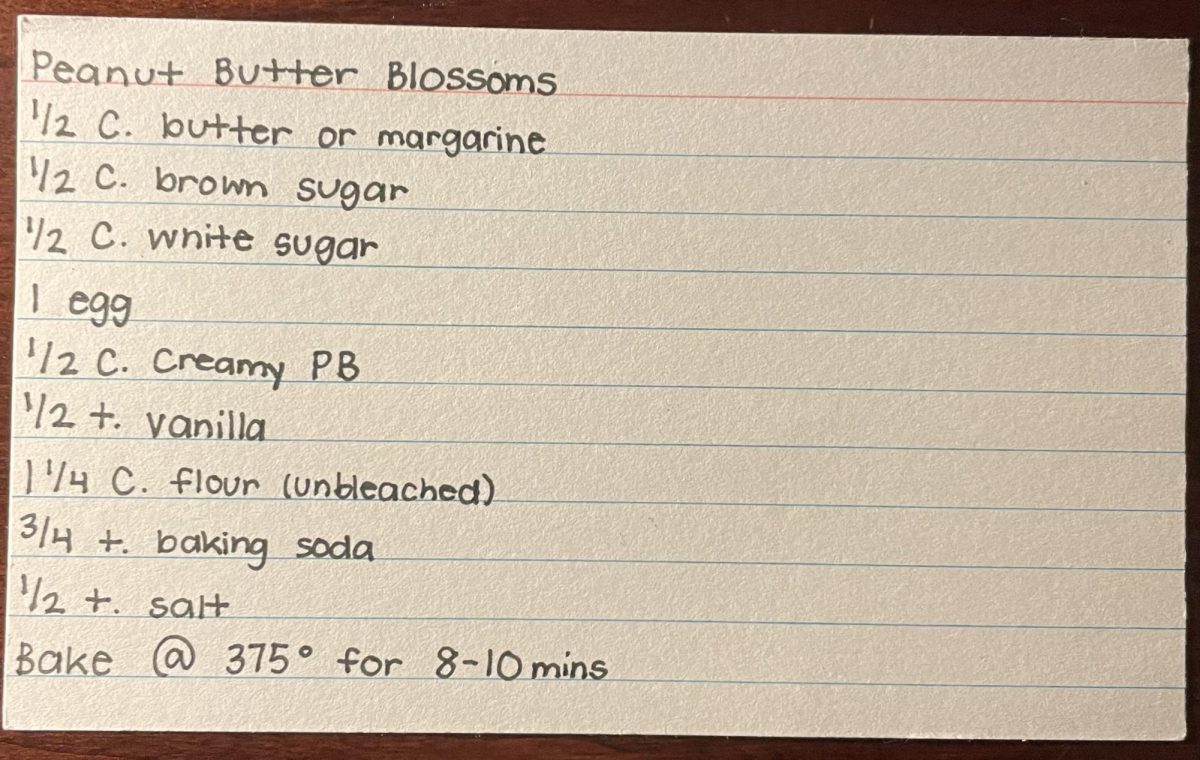 Peanut Butter Blossoms
1/2 C. butter or margarine
1/2 C. brown sugar
1/2 C. white sugar
1 egg
1/2 C. Creamy PB
1/2 t. vanilla
1 1/4 C. flour (unbleached)
3/4 t. baking soda
1/2 t. salt
Bake @ 375° for 8-10 mins